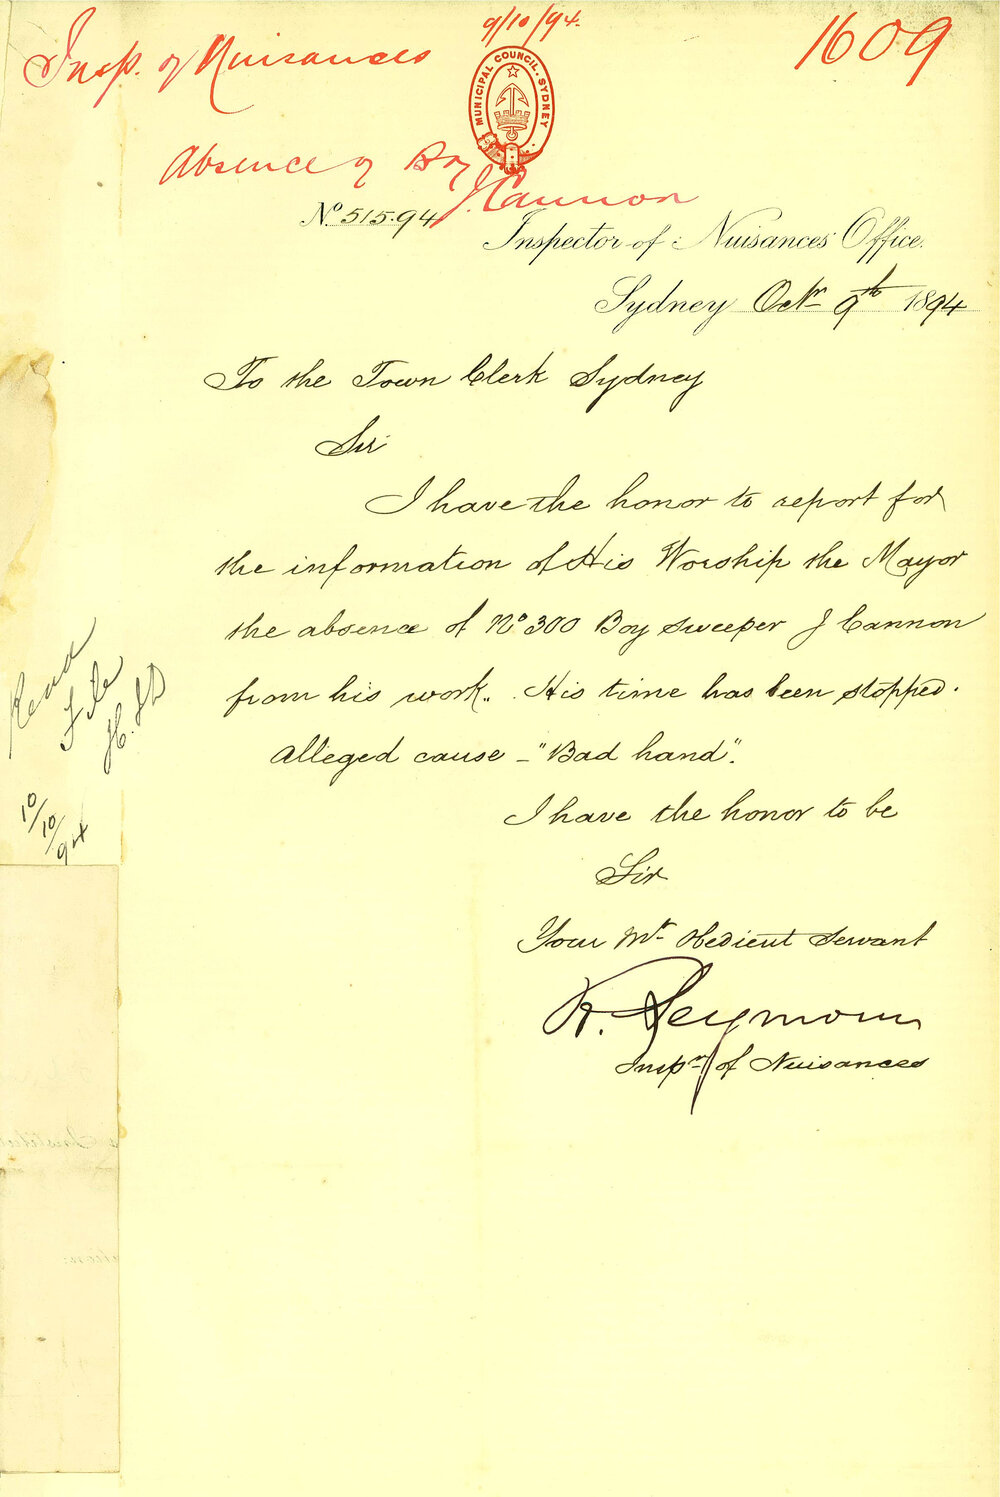 9/10/94.
Insp. of Nuisances
1609
MUNICIPAL COUNCIL. SYDNEY
Absence of Boy
J. Cannon
No 515.94
Inspector of Nuisances Office.
Sydney Octr 9th 1894
To the Town Clerk Sydney
Sir
I have the honor to report for
the information of His Worship the Mayor
the absence of No 300 Boy sweeper J Cannon
from his work. His time has been stopped.
Alleged cause - "Bad hand".
I have the honor to be
Sir
Your Mt Obedient Servant
R. Seymour
Inspr of Nuisances
Read
File
10/10/94